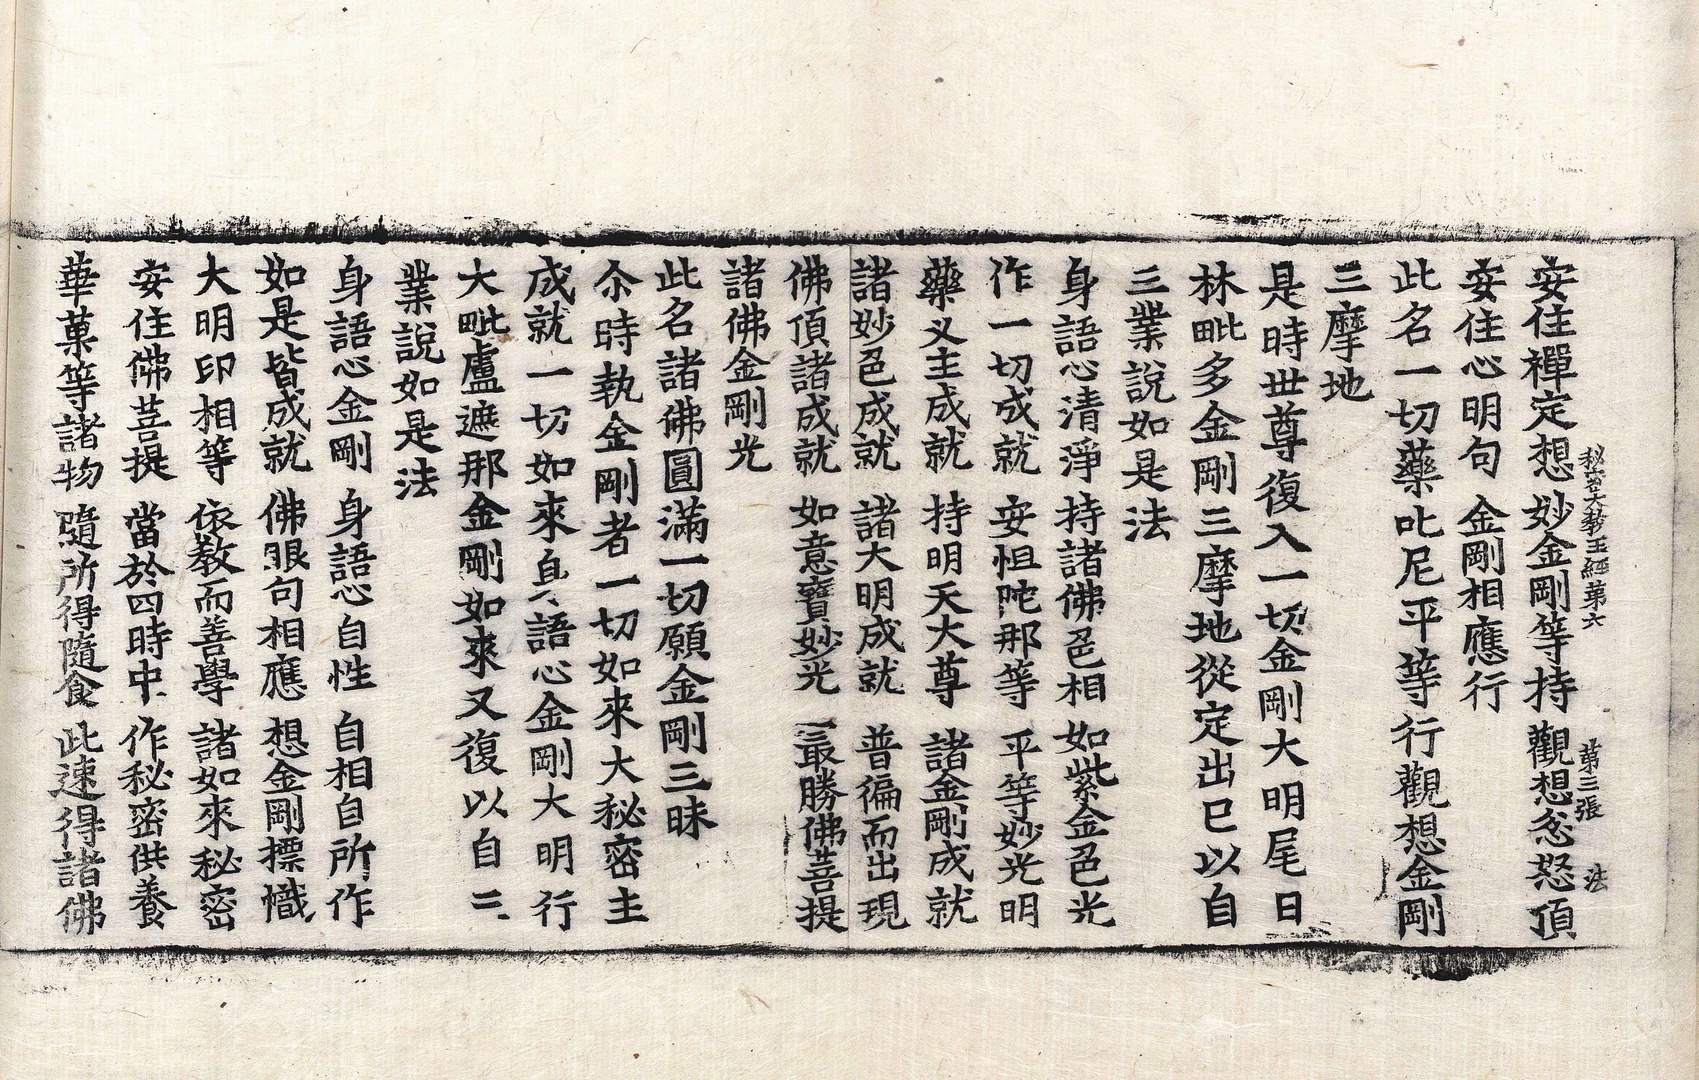 秘密大教王經第六　第三張　法
安住禪定想　妙金剛等持　觀想忿怒頂
安住心明句　金剛相應行
此名一切藥叱尼平等行觀想金剛
三摩地
是時世尊復入一切金剛大明尾日
林毗多金剛三摩地從定出已以自
三業說如是法
身語心清淨　持諸佛色相　如紫金色光
作一切成就　安怛陀那等　平等妙光明
藥叉主成就　持明天大尊　諸金剛成就
諸妙色成就　諸大明成就　普徧而出現
佛頂諸成就　如意寶妙光　最勝佛菩提
諸佛金剛光
此名諸佛圓滿一切願金剛三昧
尒時執金剛者一切如來大秘密主
成就一切如來身語心金剛大明行
大毗盧遮那金剛如來又復以自三
業說如是法
身語心金剛　身語心自性　自相自所作
如是皆成就　佛眼句相應　想金剛摽幟
大明印相等　依教而善學　諸如來秘密
安住佛菩提　當於四時中　作秘密供養
華菓等諸物　隨所得隨食　此速得諸佛